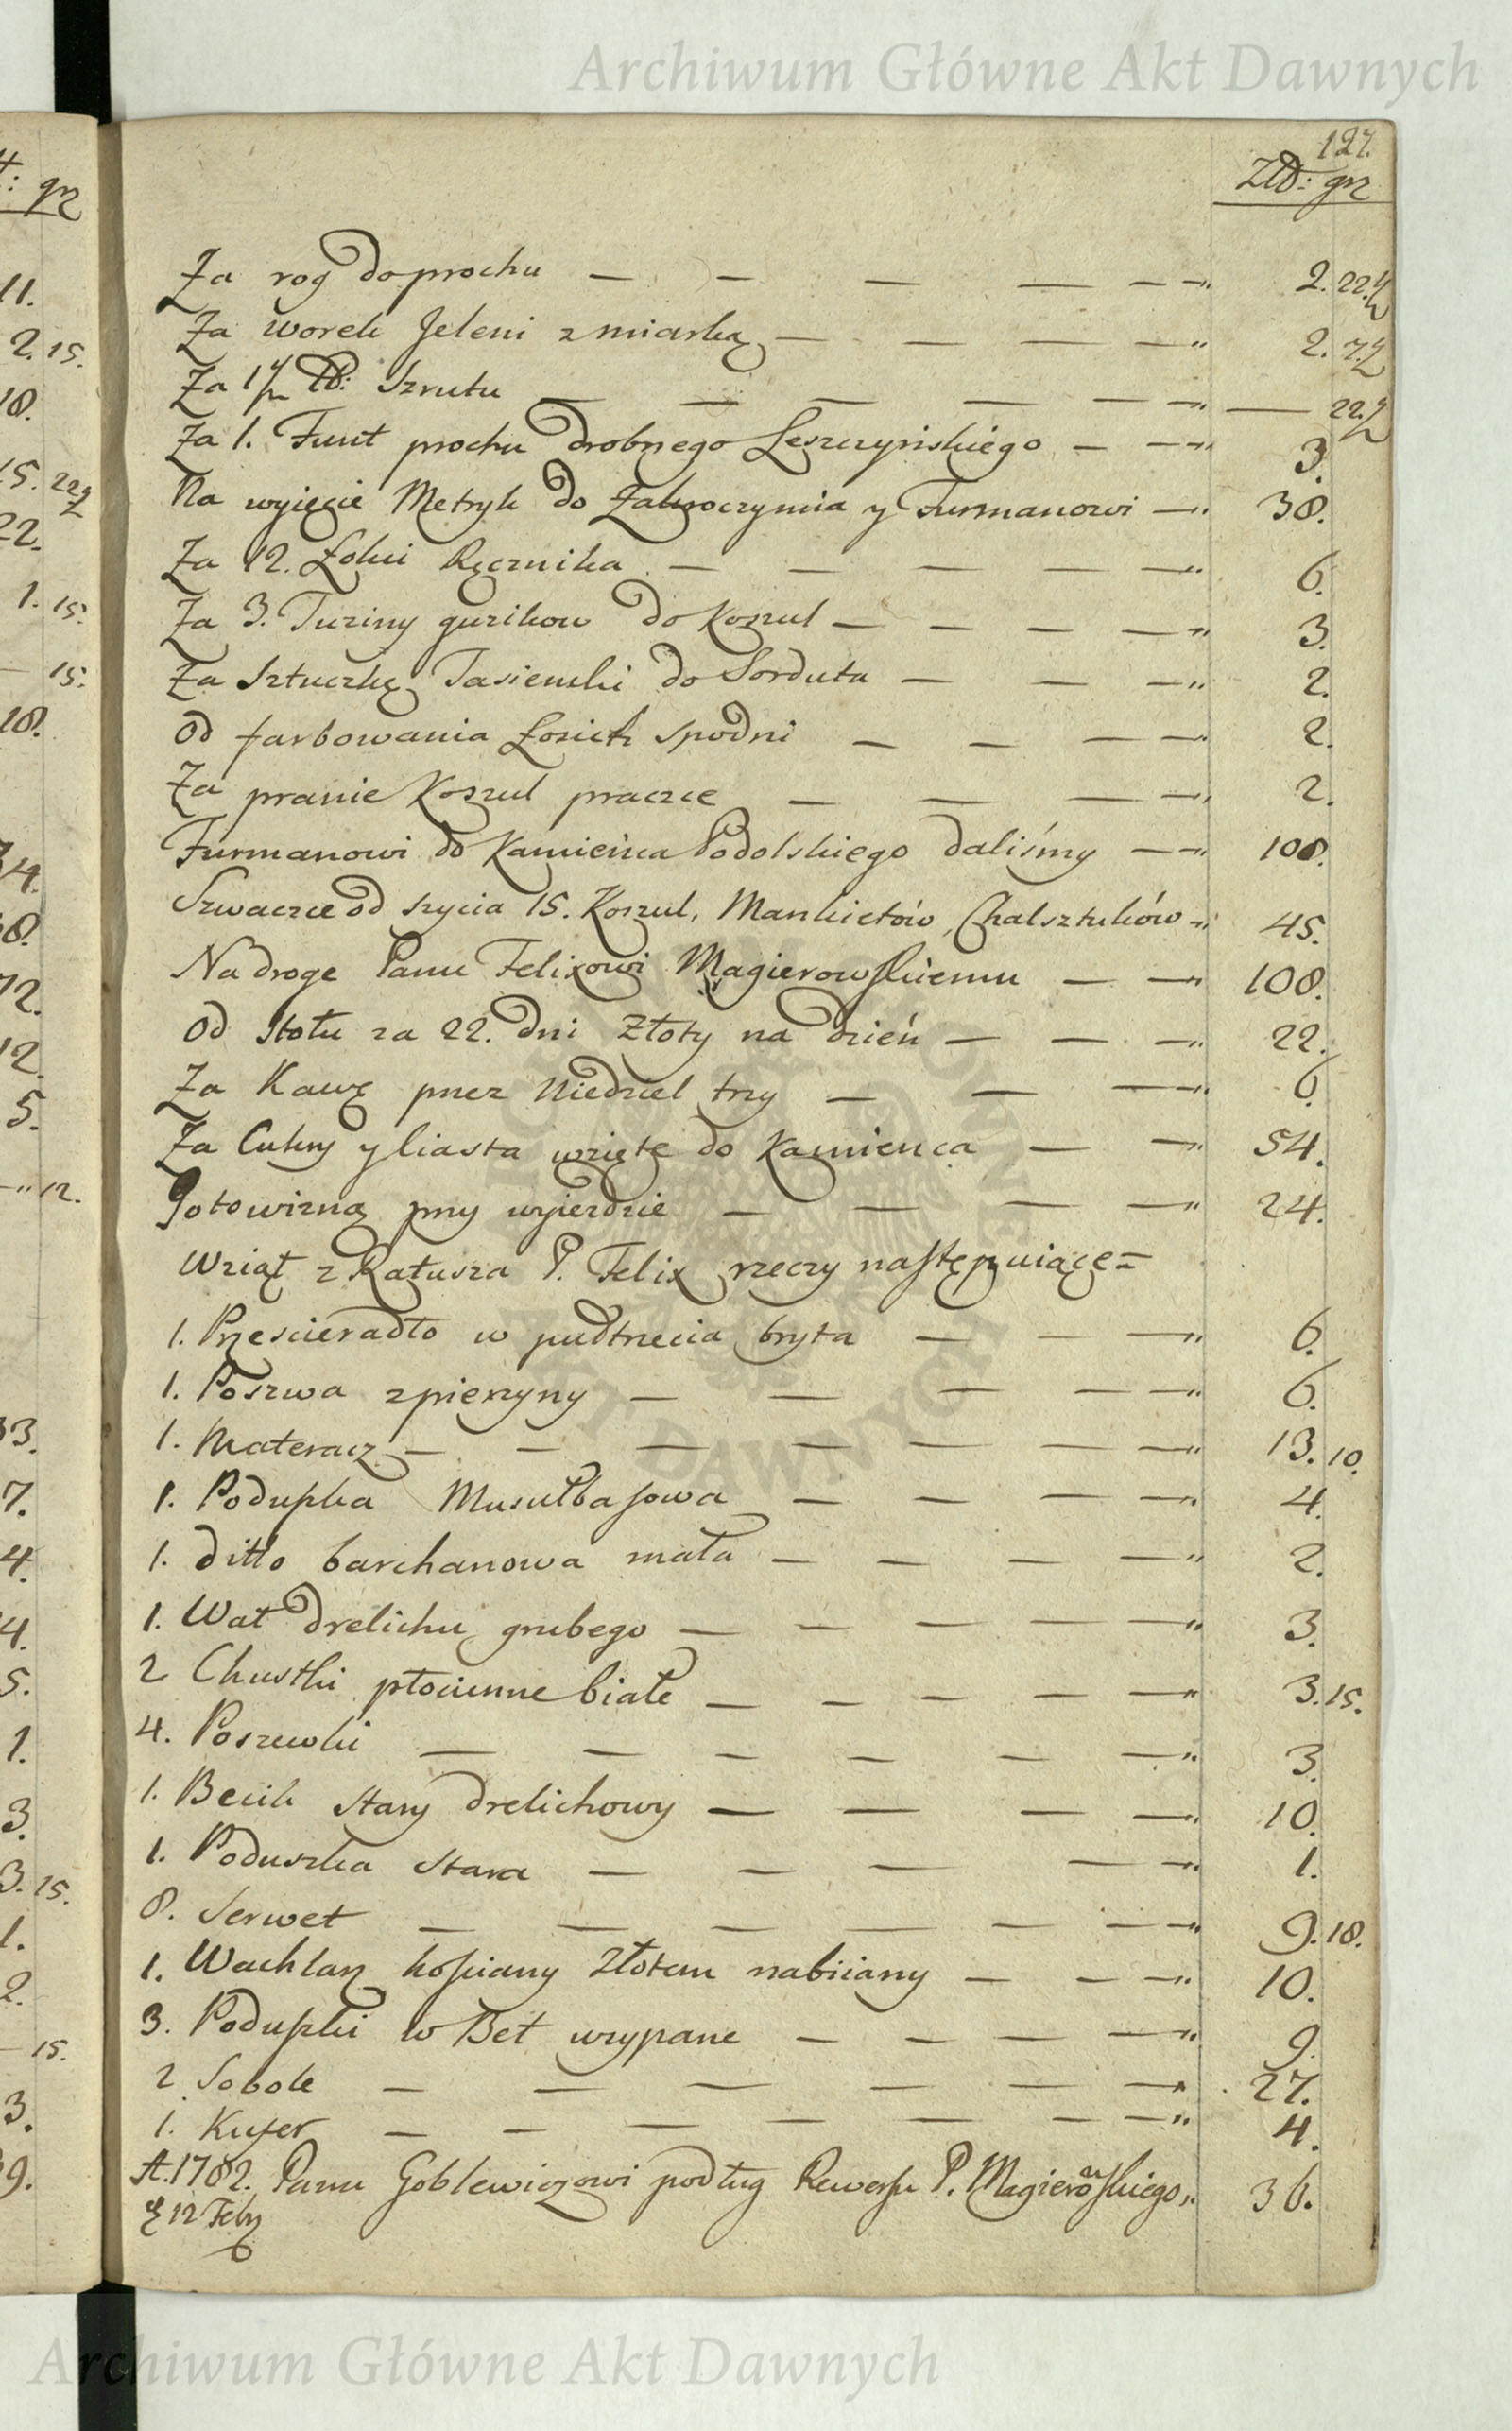 Archiwum Główne Akt Dawnych
127.
Złł: gr
Za rog do prochu — — — — — —" 2. 22½
Za worek Jeleni z miarką — — — — —" 2. 7½
Za 1½ ℔: Szrutu — — — — — —" — 22½
Za 1. Funt prochu drobnego Leszczyńskiego — — —" 3.
Na wyięcie Metryk do Zakroczymia y Furmanowi —" 38.
Za 12. Łokci Ręcznika — — — — —" 6.
Za 3. Tuziny guzikow do Koszul — — — —" 3.
Za Sztuczkę Tasiemki do Sorduta — — —" 2.
Od farbowania Łosich Spodni — — — —" 2.
Za pranie Koszul praczce — — — —" 2.
Furmanowi do Kamieńca Podolskiego daliśmy — —" 108.
Szwaczce od szycia 15. Koszul, Mankietów, Chalsztuków —" 45.
Na droge Panu Felixowi Magierowskiemu — —" 108.
Od Stołu za 22. dni Złoty na dzień — — —" 22.
Za Kawę przez Niedziel trzy — — —" 6.
Za Cukry y Ciasta wzięte do Kamieńca — —" 54.
Gotowizną przy wyjezdzie — — — —" 24.
Wziął z Ratusza P. Felix rzeczy następuiącę =
1. Prześcieradło w pułtrzecia bryta — — —" 6.
1. Poszwa z pierzyny — — — — —" 6.
1. Materacz — — — — — — —" 13. 10.
1. Poduszka Musułbasowa — — — —" 4.
1. ditto barchanowa mała — — — —" 2.
1. Wat drelichu grubego — — — — —" 3.
2 Chustki płocienne białe — — — — —" 3. 15.
4. Poszewki — — — — — —" 3.
1. Becik stary drelichowy — — — —" 10.
1. Poduszka stara — — — — —" 1.
8. Serwet — — — — — — —" 9. 18.
1. Wachlarz kościany złotem nabiiany — — —" 10.
3. Poduszki w Bet wsypane — — — —" 9.
2 Sobole — — — — — —" 27.
1. Kufer — — — — — — —" 4.
A. 1782. Panu Goblewiczowi podług Rewersu P. Magierowskiego," 36.
12 Febr
Archiwum Główne Akt Dawnych